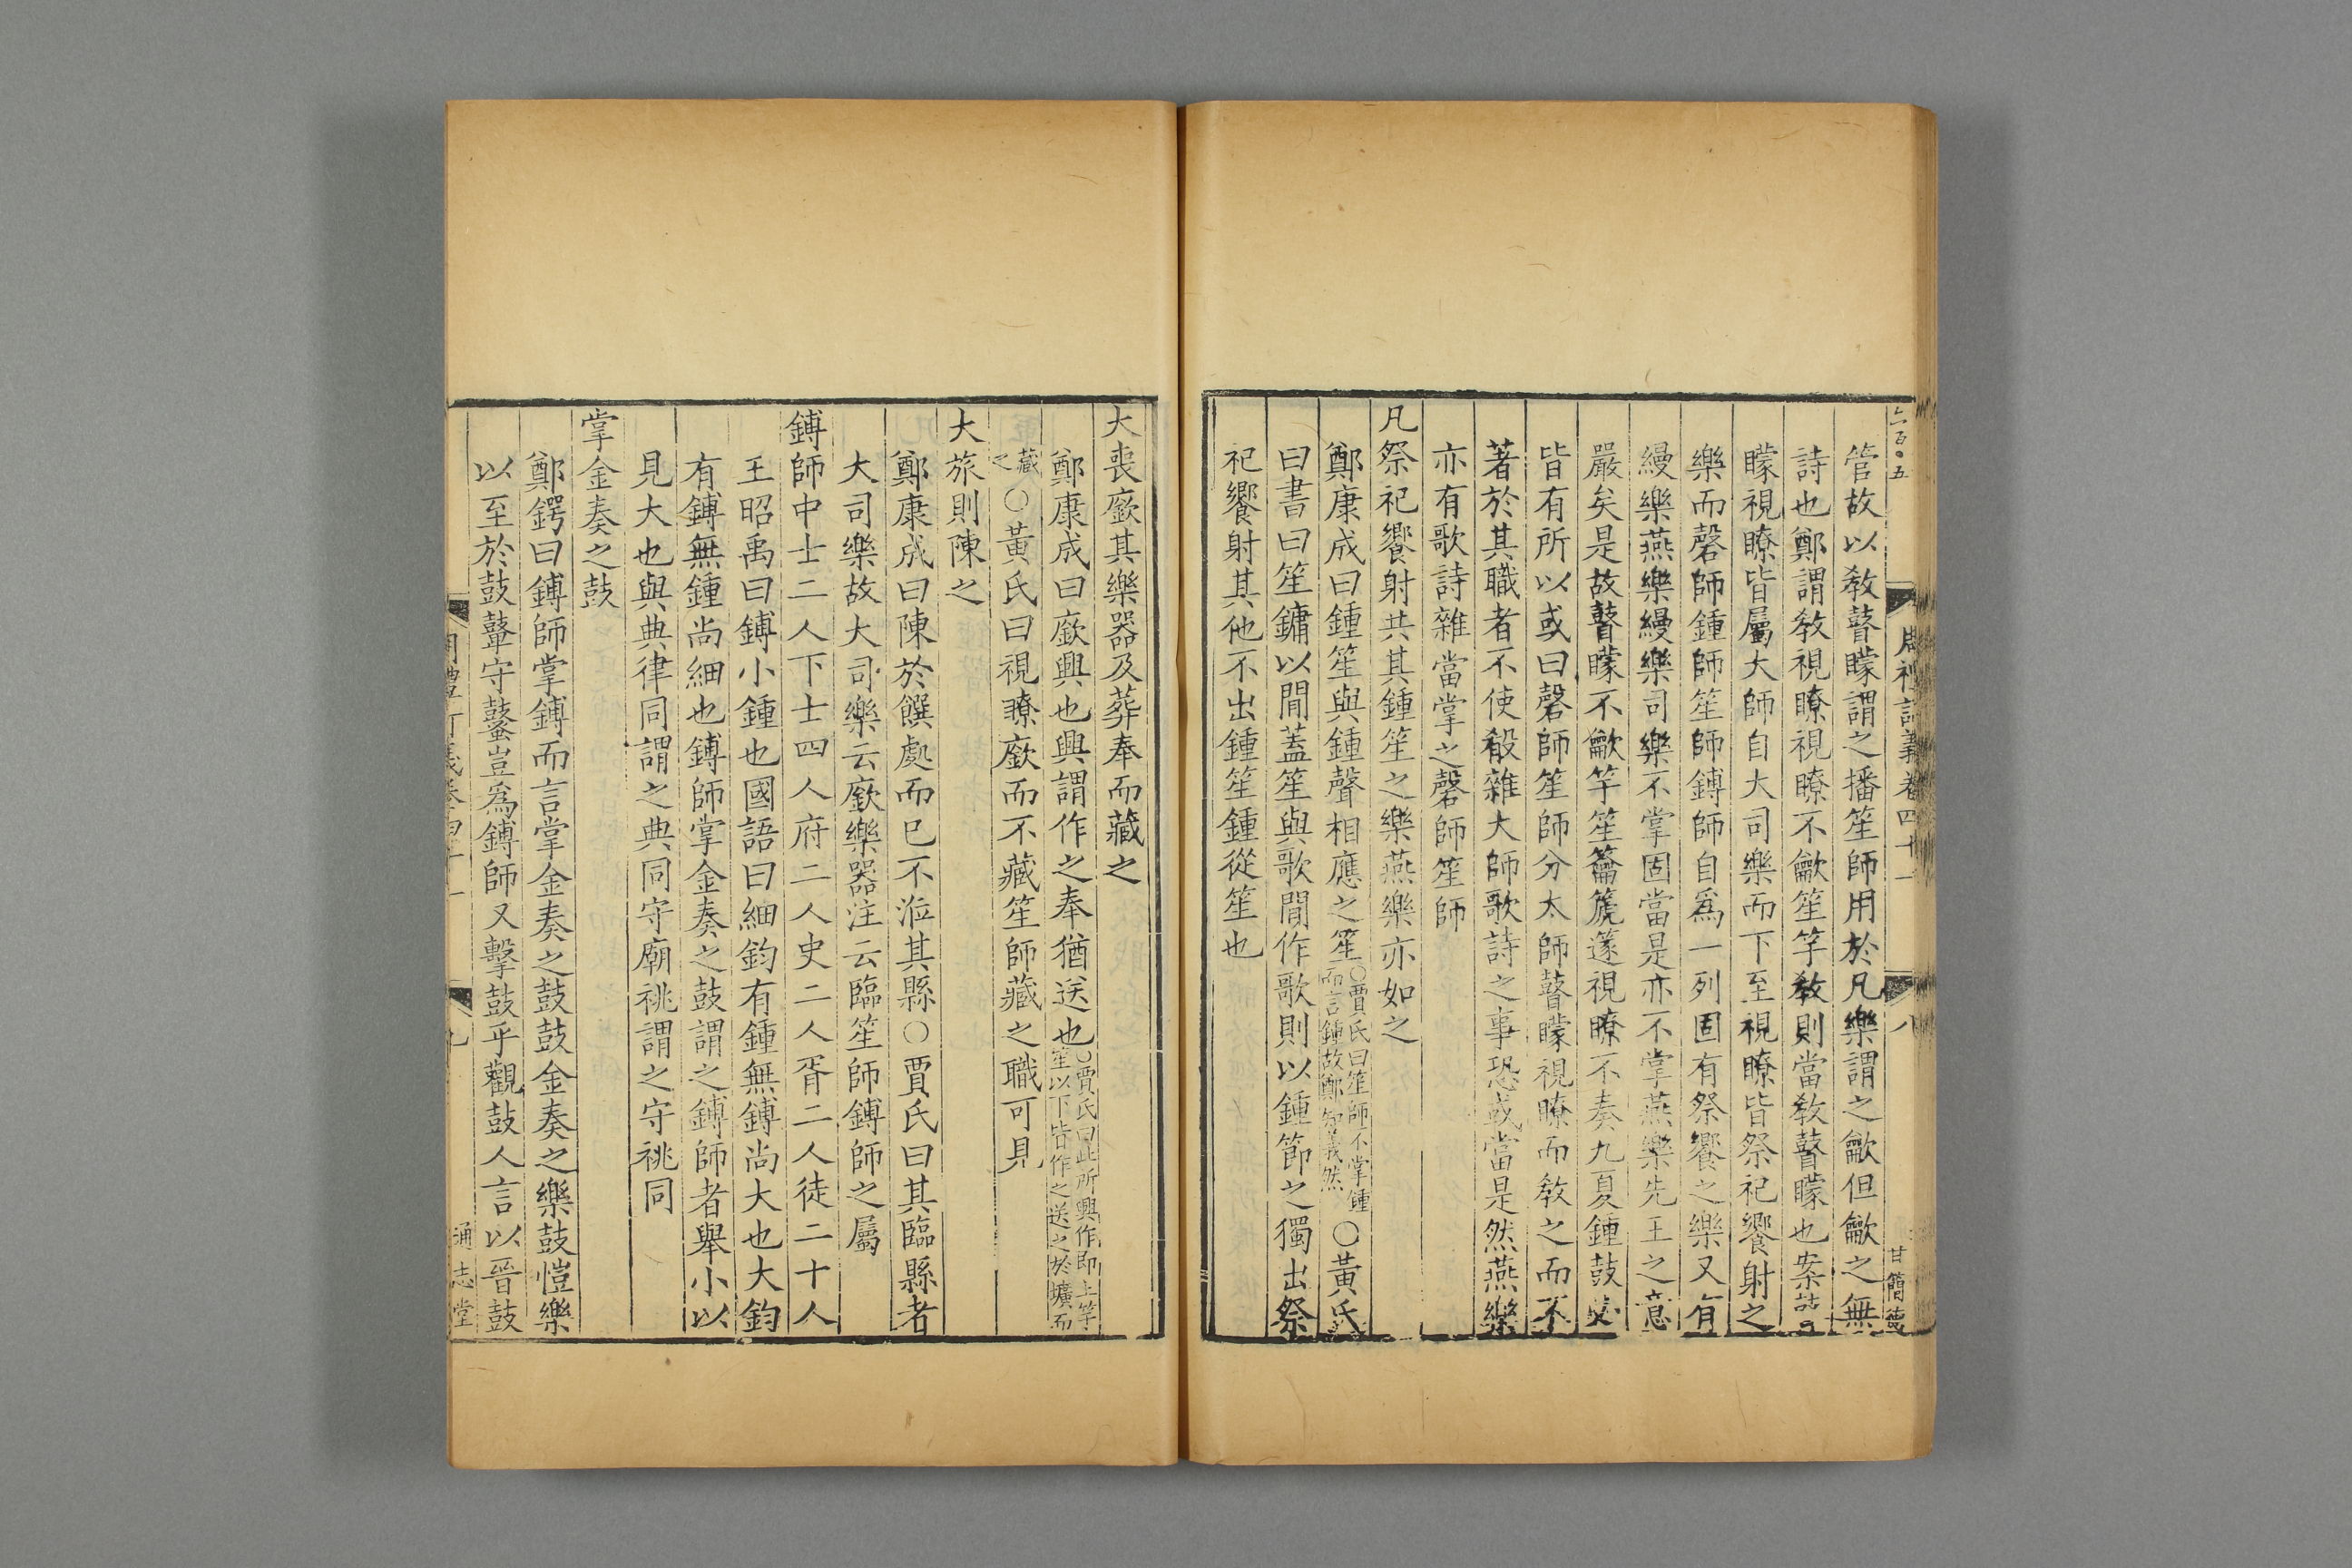 六百〇五
周禮訂義卷四十一
八
甘簡德
管故以敎瞽矇謂之播笙師用於凡樂謂之龡但龡之無
詩也鄭謂敎視瞭視瞭不龡笙竽敎則當敎瞽矇也案詩
矇視瞭皆屬大師自大司樂而下至視瞭皆祭祀饗射之
樂而磬師鍾師笙師鎛師自爲一列固有祭饗之樂又有
縵樂燕樂縵樂司樂不掌固當是亦不掌燕樂先王之意
嚴矣是故瞽矇不龡竽笙籥篪篴視瞭不奏九夏鍾鼓
皆有所以或曰磬師笙師分太師瞽矇視瞭而敎之而不
著於其職者不使殽雜大師歌詩之事恐或當是然燕樂
亦有歌詩雜當掌之磬師笙師
凡祭祀饗射共其鍾笙之樂燕樂亦如之
鄭康成曰鍾笙與鍾聲相應之笙○賈氏曰笙師不掌鍾而言鍾故鄭知義然○黃氏
曰書曰笙鏞以間蓋笙與歌間作歌則以鍾節之獨出祭
祀饗射其他不出鍾笙鍾從笙也
大喪廞其樂器及葬奉而藏之
鄭康成曰廞興也興謂作之奉猶送也○賈氏曰此所興作即上竽笙以下皆作之送之於壙而
藏之○黃氏曰視瞭廞而不藏笙師藏之職可見
大旅則陳之
鄭康成曰陳於饌處而已不涖其縣○賈氏曰其臨縣者
大司樂故大司樂云廞樂器注云臨笙師鎛師之屬
鎛師中士二人下士四人府二人史二人胥二人徒二十人
王昭禹曰鎛小鍾也國語曰細鈞有鍾無鎛尚大也大鈞
有鎛無鍾尚細也鎛師掌金奏之鼓謂之鎛師者舉小以
見大也與典律同謂之典同守廟祧謂之守祧同
掌金奏之鼓
鄭鍔曰鎛師掌鎛而言掌金奏之鼓鼓金奏之樂鼓愷樂
以至於鼓鼜守鼜豈爲鎛師又擊鼓乎觀鼓人言以晉鼓
周禮訂義卷四十一
九
通志堂